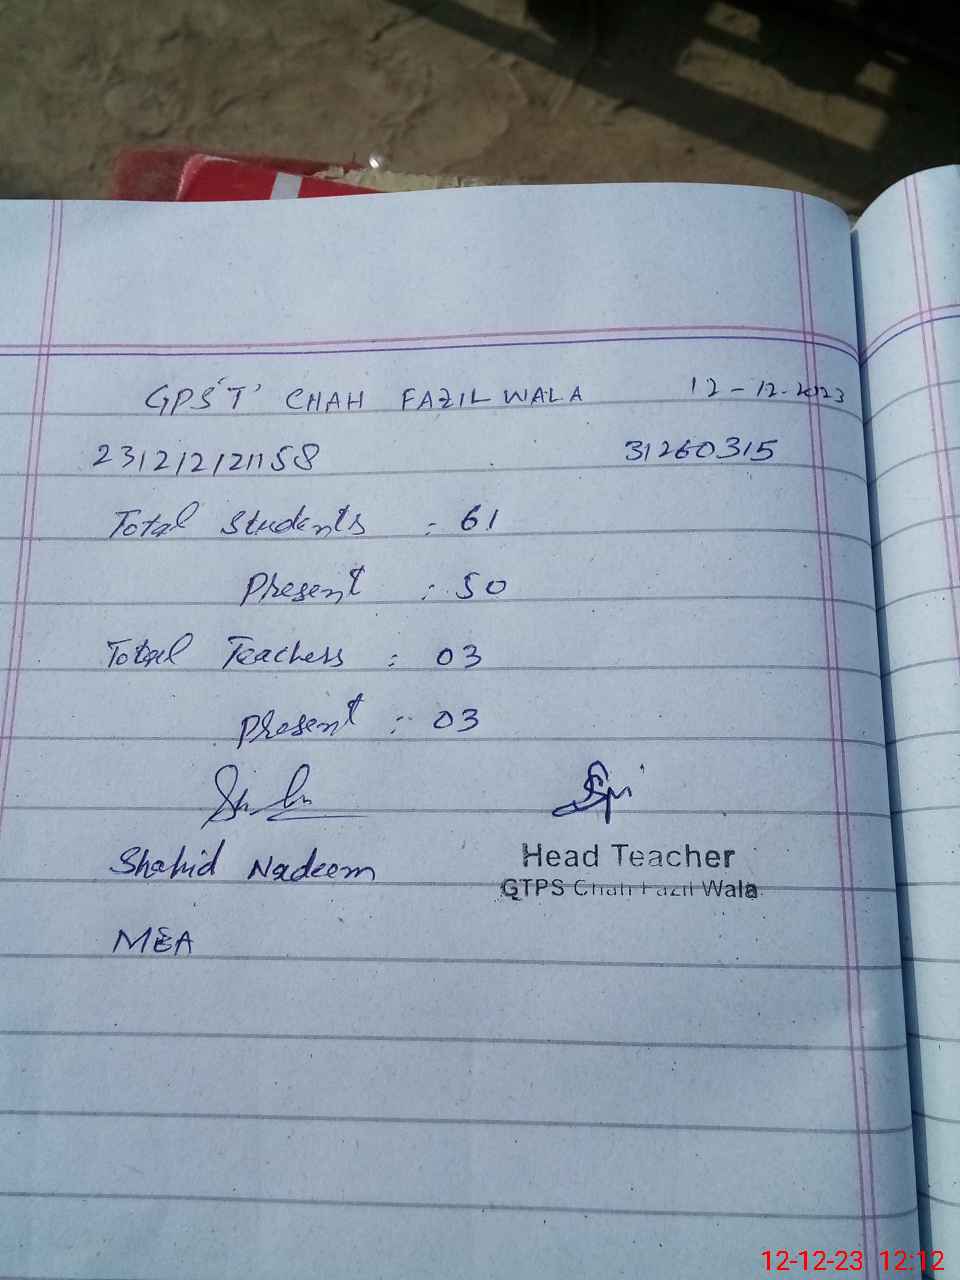 GPS'T' CHAH FAZIL WALA 12-12-2023
231212121158 31260315
Total Students : 61
Present : 50
Total Teachers : 03
Present : 03
Shahid Nadeem
MEA
Head Teacher
GTPS Chah Fazil Wala
12-12-23 12:12